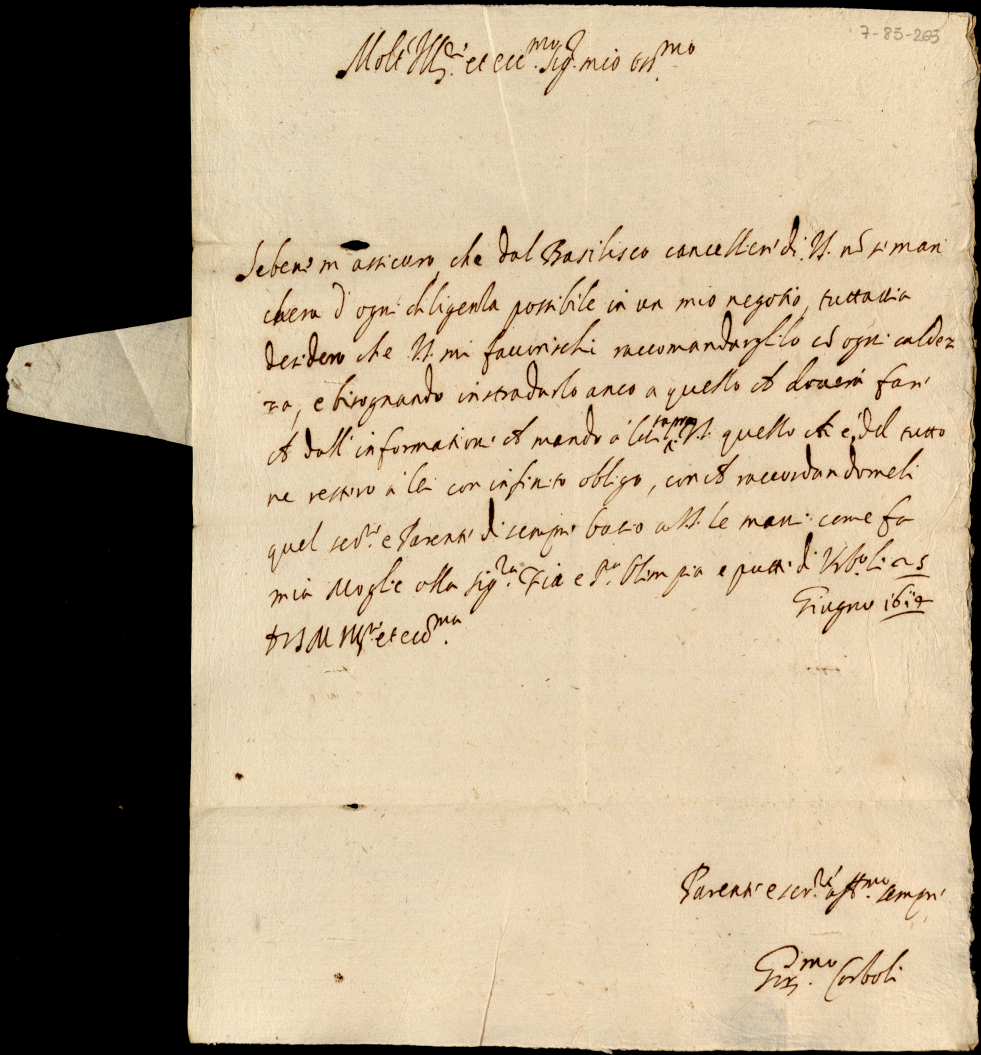 7-85-265
Molt' Ill.re et ecc.mo Sig.r mio oss.mo
Sebene m'assicuro, che dal Basilisco cancelliere di V.S. nō si man
cherà d'ogni diligenza possibile in un mio negotio, tuttavia
desidero che V.S. mi favorischi raccomandarglilo cō ogni caldez
za, e bisognando instradarlo anco a quello ch doverà fare
ch dall'informatione ch mando à V.S. quello ch è, del tutto
ne restarò à lei con infinito obligo, con ch raccordandomeli
quel ser.re e Parente di sempre bacio a V.S. le mani come fa
mia Moglie alla Sig.ra Zia e S.ra Olimpia e putti di Urb.o li 25
Giugno 1614
D V S M Ill.re et ecc.ma
Parente e ser.re aff.mo sempre
Gir.mo Corboli